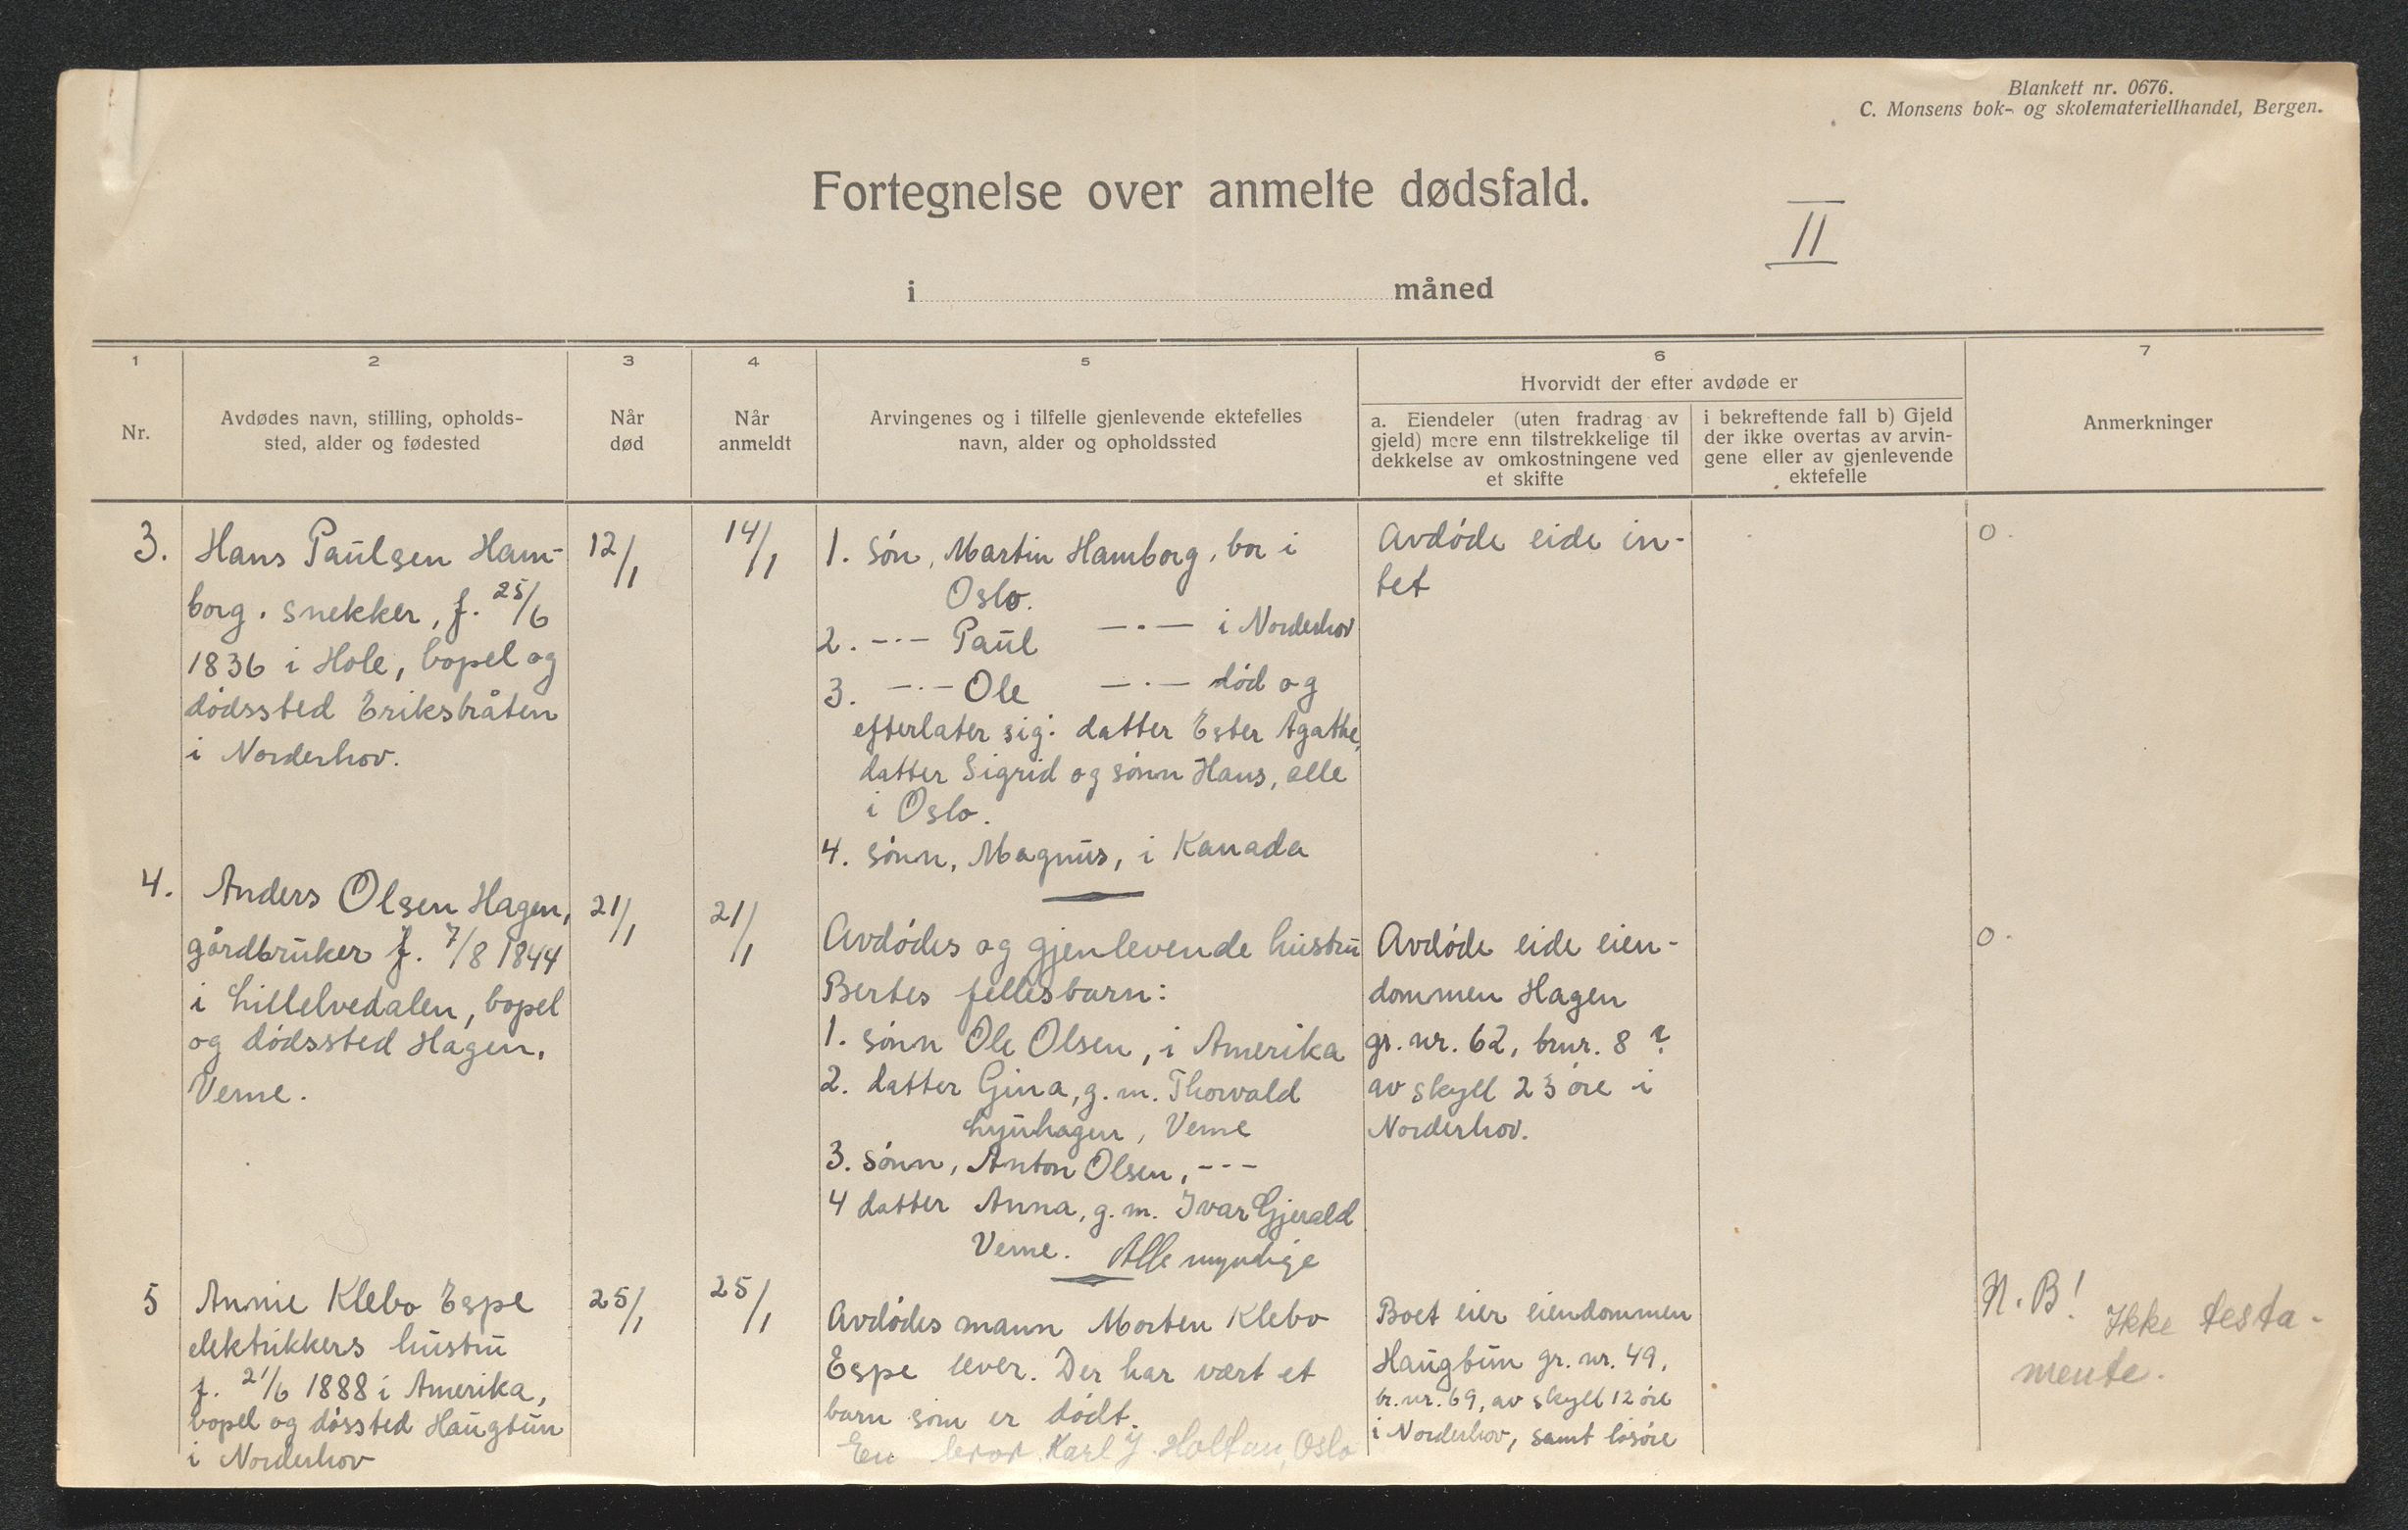 Blankett nr. 0676.
C. Monsens bok- og skolemateriellhandel, Bergen.
Fortegnelse over anmelte dødsfald.
II
i måned
1
2
3
4
5
6
7
Nr.
Avdødes navn, stilling, opholds-
sted, alder og fødested
Når
død
Når
anmeldt
Arvingenes og i tilfelle gjenlevende ektefelles
navn, alder og opholdssted
Hvorvidt der efter avdøde er
a. Eiendeler (uten fradrag av
gjeld) mere enn tilstrekkelige til
dekkelse av omkostningene ved
et skifte
i bekreftende fall b) Gjeld
der ikke overtas av arvin-
gene eller av gjenlevende
ektefelle
Anmerkninger
3.
Hans Paulsen Ham-
borg. snekker, f. 25/6
1836 i Hole, bopel og
dødssted Eriksbråten
i Norderhov.
12/1
14/1
1. Søn, Martin Hamborg, bor i
Oslo.
2. -·- Paul -·- i Norderhov
3. -·- Ole -·- død og
efterlater sig: datter Ester Agathe,
datter Sigrid og sønn Hans, alle
i Oslo.
4. sønn, Magnus, i Kanada
Avdøde eide in-
tet
0.
4.
Anders Olsen Hagen,
gårdbruker f. 7/8 1844
i Lillelvedalen, bopel
og dødssted Hagen,
Veme.
21/1
21/1
Avdødes og gjenlevende hustru
Bertes fellesbarn:
1. sønn Ole Olsen, i Amerika
2. datter Gina, g. m. Thorvald
Lynhagen, Veme
3. sønn, Anton Olsen, ---
4 datter Anna, g. m. Ivar Gjerald
Veme. Alle myndige
Avdøde eide eien-
dommen Hagen
gr. nr. 62, brnr. 8 ?
av skyll 23 øre i
Norderhov.
0.
5
Annie Klebo Espe
elektrikkers hustru
f. 21/6 1888 i Amerika,
bopel og døssted Haugtun
i Norderhov
25/1
25/1
Avdødes mann Morten Klebo
Espe lever. Der har vært et
barn som er dødt.
En bror Karl J. Holtan, Oslo
Boet eier eiendommen
Haugtun gr. nr. 49,
br. nr. 69, av skyll 12 øre
i Norderhov, samt løsøre
N. B! Ikke testa-
mente.